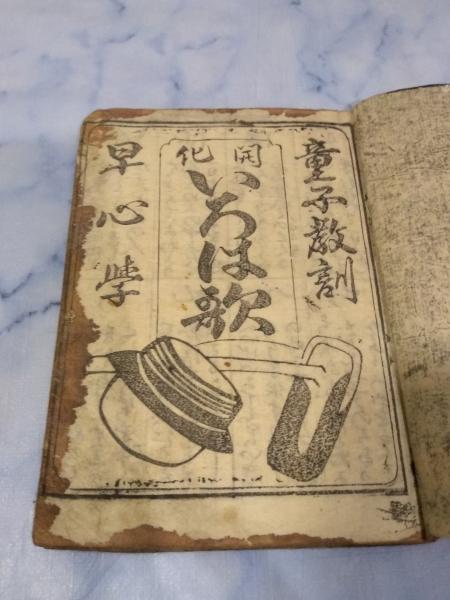 童子教訓
開化
いろは歌
早心学